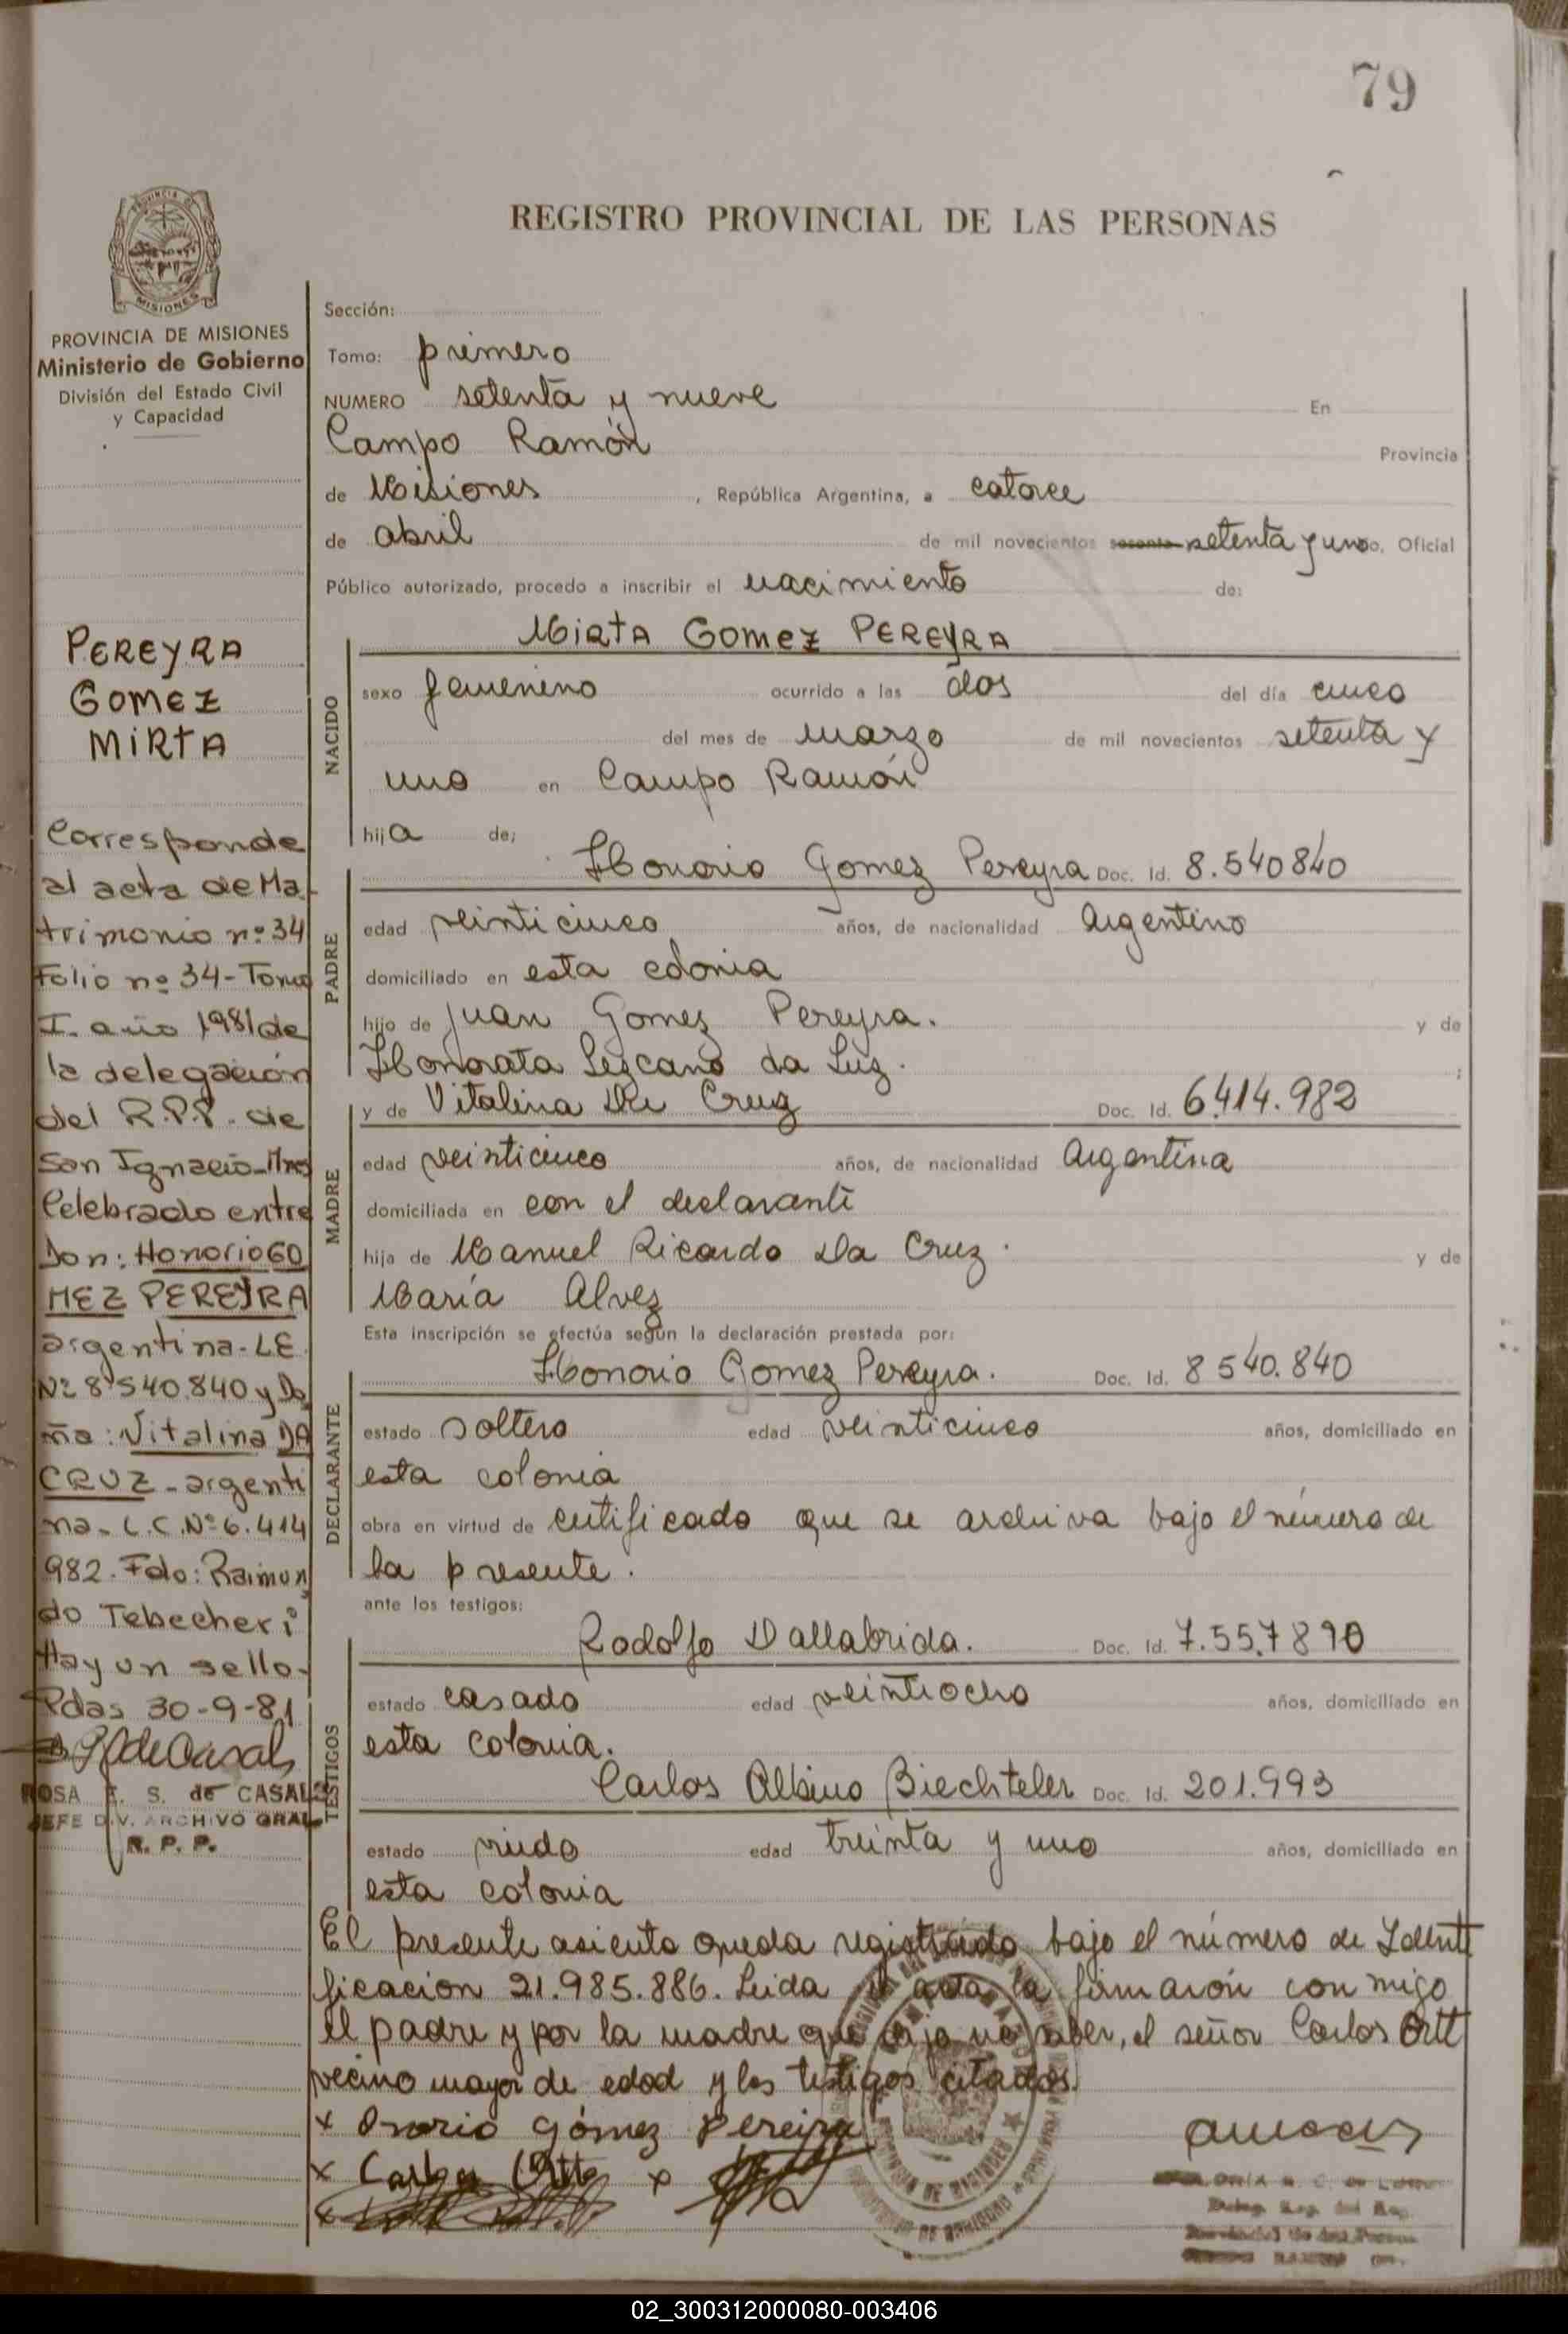 79
REGISTRO PROVINCIAL DE LAS PERSONAS
MISIONES
PROVINCIA DE MISIONES
Ministerio de Gobierno
División del Estado Civil
y Capacidad
PEREYRA
GOMEZ
MIRTA
Corresponde
al acta de Ma-
trimonio nº 34
Folio nº 34-Tomo
I. año 1981 de
la delegación
del R.P.P. de
San Ignacio-Mnes
Celebrado entre
Don: Honorio GO
MEZ PEREYRA
argentina-LE
Nº 8.540.840 y Do
ña: Vitalina DA
CRUZ-argenti
na-L.C.Nº 6.414
982. Fdo: Raimun
do Tebecheri
Hay un sello-
Pdas 30-9-81
ROSA E. S. de CASALS
JEFE DIV. ARCHIVO GRAL
R. P. P.
Sección:
Tomo: primero
NUMERO setenta y nueve En
Campo Ramón Provincia
de Misiones, República Argentina, a catorce
de abril de mil novecientos sesenta setenta y uno, Oficial
Público autorizado, procedo a inscribir el nacimiento de:
NACIDO
MIRTA GOMEZ PEREYRA
sexo femenino ocurrido a las dos del día cinco
del mes de marzo de mil novecientos setenta y
uno en Campo Ramón
hija de:
PADRE
Honorio Gomez Pereyra Doc. Id. 8.540840
edad veinticinco años, de nacionalidad Argentino
domiciliado en esta colonia
hijo de Juan Gomez Pereyra. y de
Honorata Lezcano da Luz.
MADRE
y de Vitalina Da Cruz Doc. Id. 6.414.982
edad veinticinco años, de nacionalidad Argentina
domiciliada en con el declarante
hija de Manuel Ricardo Da Cruz. y de
María Alvez
Esta inscripción se efectúa según la declaración prestada por:
DECLARANTE
Honorio Gomez Pereyra. Doc. Id. 8540.840
estado soltero edad veinticinco años, domiciliado en
esta colonia
obra en virtud de certificado que se archiva bajo el número de
la presente.
ante los testigos:
TESTIGOS
Rodolfo Dallabrida. Doc. Id. 7.557890
estado casado edad veintiocho años, domiciliado en
esta colonia.
Carlos Albino Biechteler Doc. Id. 201.993
estado viudo edad treinta y uno años, domiciliado en
esta colonia
El presente asiento queda registrado bajo el número de Identi
ficacion 21.985.886. Leida el acta la firmarón con migo
el padre y por la madre que dijo no saber, el señor Carlos Ott
vecino mayor de edad y los testigos citados.
x Onorio Gómez Pereira
x Carlos Otto x
x
02_300312000080-003406